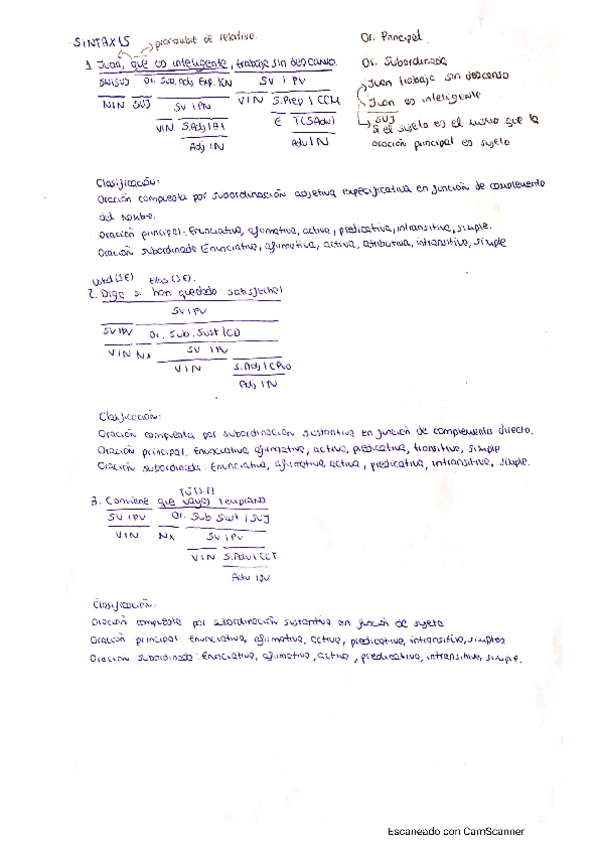 SINTAXIS → pronombre de relativo. Or. Principal
1. Juan, que es inteligente, trabaja sin descanso. Or. Subordinada
SN/SUJ Or. Sub. adj Exp. /CN SV / PV Juan trabaja sin descanso
N/N SUJ SV / PN V/N S.Prep / CCM Juan es inteligente
V/N S.Adj/At E T(SAdv) SUJ
Adj /N Adv/N Si el sujeto es el mismo que la
oración principal es sujeto
Clasificación:
Oración compuesta por subordinación adjetiva especificativa en función de complemento
del nombre.
Oración principal: Enunciativa, afirmativa, activa, predicativa, intransitiva, simple.
Oración subordinada Enunciativa, afirmativa, activa, atributiva, intransitiva, simple
Usted (SE) Ellos (SE).
2. Diga si han quedado satisfechos
SV / PV
SV/PV Or. Sub. Sust / CD
V/N Nx SV / PV
V/N S.Adj / CPvo
Adj /N
Clasificación:
Oración compuesta por subordinación sustantiva en función de complemento directo.
Oración principal: Enunciativa, afirmativa, activa, predicativa, transitiva, simple
Oración subordinada: Enunciativa, afirmativa, activa, predicativa, intransitiva, simple.
Tú (SE)
3. Conviene que vayas temprano
SV / PV Or. Sub Sust / SUJ
V/N Nx SV / PV
V/N S.Adv / CCT
Adv /N
Clasificación:
Oración compuesta por subordinación sustantiva en función de sujeto
Oración principal: Enunciativa, afirmativa, activa, predicativa, intransitiva, simples
Oración subordinada: Enunciativa, afirmativa, activa, predicativa, intransitiva, simple.
Escaneado con CamScanner